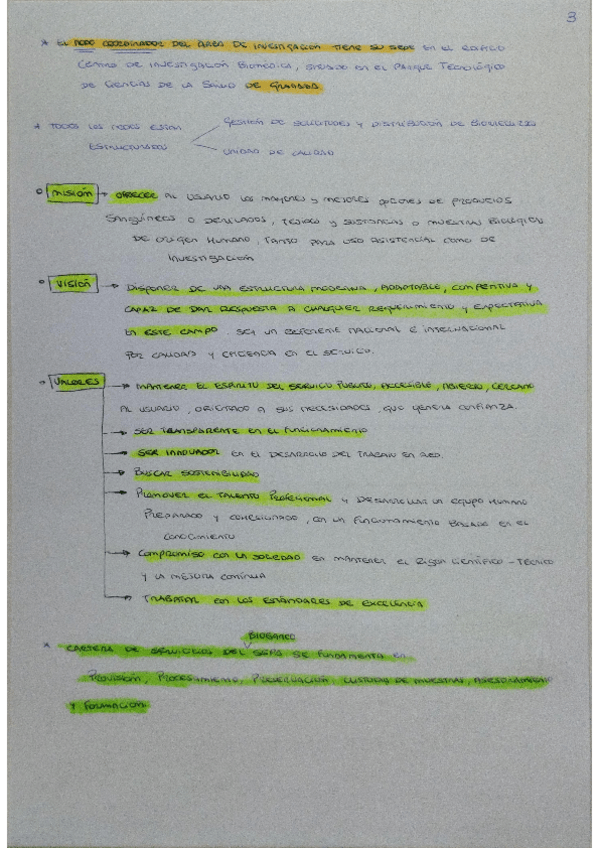 3
* EL NODO COORDINADOR DEL ÁREA DE INVESTIGACIÓN TIENE SU SEDE EN EL EDIFICIO
CENTRO DE INVESTIGACIÓN BIOMÉDICA, SITUADO EN EL PARQUE TECNOLÓGICO
DE CIENCIAS DE LA SALUD DE GRANADA
* TODOS LOS NODOS ESTÁN
ESTRUCTURADOS
GESTIÓN DE SOLICITUDES Y DISTRIBUCIÓN DE BIORECURSOS
UNIDAD DE CALIDAD
MISIÓN → OFRECER AL USUARIO LOS MAYORES Y MEJORES OPCIONES DE PRODUCTOS
SANGUÍNEOS O DERIVADOS, TEJIDOS Y SUSTANCIAS O MUESTRAS BIOLÓGICAS
DE ORIGEN HUMANO, TANTO PARA USO ASISTENCIAL COMO DE
INVESTIGACIÓN
VISIÓN → DISPONER DE UNA ESTRUCTURA MODERNA, ADAPTABLE, COMPETITIVA Y
CAPAZ DE DAR RESPUESTA A CUALQUIER REQUERIMIENTO Y EXPECTATIVA
EN ESTE CAMPO. SER UN REFERENTE NACIONAL E INTERNACIONAL
POR CALIDAD Y EFICIENCIA EN EL SERVICIO.
VALORES → MANTENER EL ESPÍRITU DEL SERVICIO PÚBLICO, ACCESIBLE, ABIERTO, CERCANO
AL USUARIO, ORIENTADO A SUS NECESIDADES, QUE GENERA CONFIANZA.
→ SER TRANSPARENTE EN EL FUNCIONAMIENTO
→ SER INNOVADOR EN EL DESARROLLO DEL TRABAJO EN RED.
→ BUSCAR SOSTENIBILIDAD
→ PROMOVER EL TALENTO PROFESIONAL Y DESARROLLAR UN EQUIPO HUMANO
PREPARADO Y COHESIONADO, CON UN FUNCIONAMIENTO BASADO EN EL
CONOCIMIENTO
→ COMPROMISO CON LA SOCIEDAD EN MANTENER EL RIGOR CIENTÍFICO-TÉCNICO
Y LA MEJORA CONTINUA
→ TRABAJAR CON LOS ESTÁNDARES DE EXCELENCIA
BIOBANCO
* CARTERA DE SERVICIOS DEL SSPA SE FUNDAMENTA EN
PROVISIÓN, PROCESAMIENTO, PRESERVACIÓN, CUSTODIA DE MUESTRAS, ASESORAMIENTO
Y FORMACIÓN.